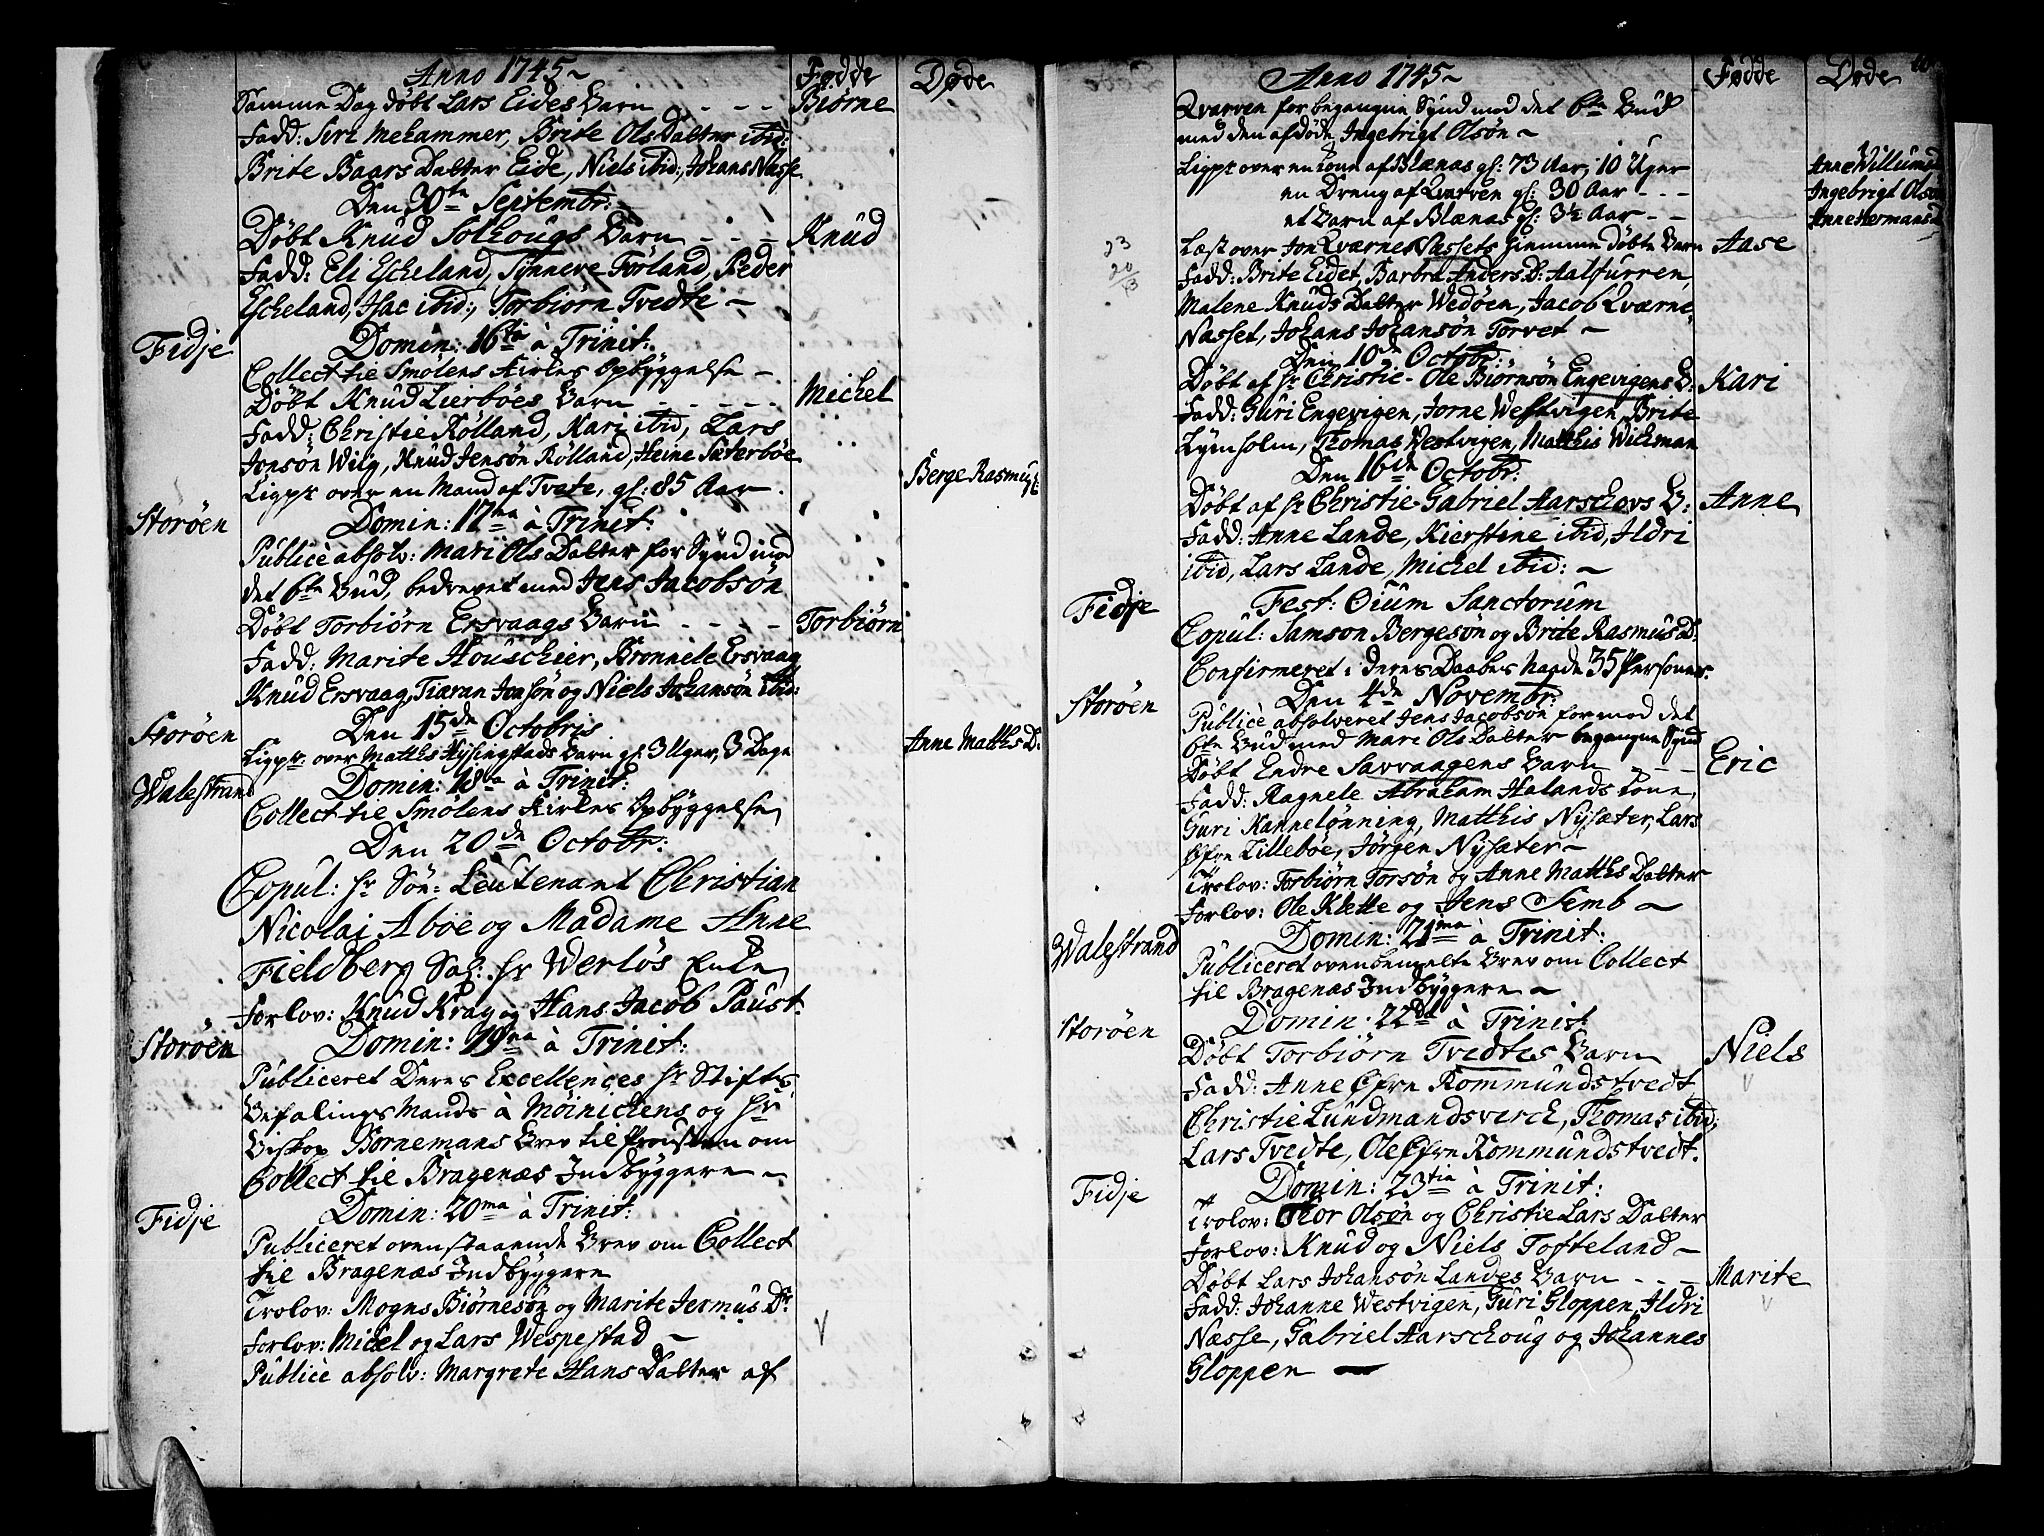 Anno 1745
Fødde
Døde
Samme Dag døbt Lars Eides Barn - - - Biørne
Fadd: Siri Mehammer, Brite Ols Datter ibid:
Brite Baars Datter Eide, Niels ibid:, Johans Næsse
Den 30te Septembr:
Døbt Knud Solhougs Barn - - - Knud
Fadd: Eli Escheland, Synneve Førland, Peder
Escheland, Isac ibid:, Torbiørn Tvedte -
Fidje
Domin: 16ta à Trinit:
Collect til Smølens Kirkes Opbyggelse -
Døbt Knud Lierbøes Barn - - - - Michel
Fadd: Christie Rølland, Kari ibid, Lars
Jonsøn Wiig, Knud Jensøn Rølland, Heine Sæterbøe
Ligpr: over en Mand af Tveite, gl: 85 Aar. Berge Rasmus S:
Storøen
Domin: 17ma à Trinit:
Publicè absolv: Mari Ols Datter for Synd mod
det 6te Bud, bedrevet med Jens Jacobsøn
Døbt Torbiørn Ersvaags Barn - - - - Torbiørn
Fadd: Marite Houschier, Brønnele Ersvaag
Knud Ersvaag, Tiæran Jonsøn og Niels Johansøn ibid:
Storøen
Den 15de Octobris
Ligpr: over Matthis Hysingstads Barn gl: 3 Uger, 3 Dage Anne Matthis D:
Walestrand
Domin: 18va à Trinit:
Collect til Smølens Kirkes Opbyggelse
Den 20de Octobr:
Copul: Hr Søn: Leutenant Christian
Nicolai Abøe og Madame Anne
Fieldberg Sal: Hr Werløs Enke
Forlov: Knud Krag og Hans Jacob Paust.
Storøen
Domin: 19na à Trinit:
Publiceret Deres Excellences Hr Stifts
Befalings Mands à Møinichens og Hr
Biskop Bornemans Brev til Provsten om
Collect til Bragenæs Indbyggere -
Fidje
Domin: 20ma à Trinit:
Publiceret ovenstaaende Brev om Collect
til Bragenæs Indbyggere
Trolov: Mogns Biørnesøn og Marite Jermus Dr.
Forlov: Michel og Lars Wespestad -
Publicè absolv: Margrete Hans Datter af
Anno 1745
Fødde
Døde
Qvarven for begangne Synd mod det 6te Bud
med den afdøde Ingebrigt Olsøn -
Ligpr over en Kone af Blænas gl: 73 Aar, 10 Uger Anne Willums D
en Dreng af Qvarven gl: 30 Aar - - - Ingebrigt Olsøn
et Barn af Blænas gl: 3½ Aar - - Anne Hermans D
23
20
13
Læst over Jon Qværne Nassets hiemme døbte Barn Aase
Fadd: Brite Eidet, Barbra Anders D: Aalfurren,
Malene Knuds Datter Wedøen, Jacob Qværne
Nasset, Johans Johansøn Torvet -
Den 10de Octobr:
Døbt af Hr Christie - Ole Biørnsøn Engevigens B: Kari
Fadd: Guri Engevigen, Jorne Westvigen, Brite
Lymholm, Thomas Vestvigen, Matthis Wichman
Den 16de Octobr:
Døbt af Hr Christie - Gabriel Aarschovs B: Anne
Fadd: Anne Lande, Kierstine ibid, Ildri
ibid, Lars Lande, Michel ibid: -
Fidje
Fest: Oium Sanctorum
Copul: Samson Bergesøn og Brite Rasmus D:
Confirmeret i deres Daabes Naade 35 Personer.
Storøen
Den 4de Novembr:
Publicè absolveret Jens Jacobsøn for mod det
6te Bud med Mari Ols Datter begangne Synd
Døbt Endre Sarvaagens Barn - - - Eric
Fadd: Ragnele Abraham Halands Kone,
Guri Kannelønning, Matthis Nysæter, Lars
Øfre Lillebøe, Jørgen Nysæter -
Trolov: Torbiørn Torsøn og Anne Matthis Datter
Forlov: Ole Klette og Jens Semb -
Walestrand
Domin: 21ma à Trinit:
Publiceret ovenbemelte Brev om Collect
til Bragenæs Indbyggere -
Storøen
Domin: 22da à Trinit:
Døbt Torbiørn Tvedtes Barn Niels
Fadd: Anne Øfre Rommundstvedt
Christie Lundmandsverck, Thomas ibid,
Lars Tvedte, Ole Øfre Rommundstvedt.
Fidje
Domin: 23tia à Trinit:
Trolov: Thor Olsøn og Christie Lars Datter
Forlov: Knud og Niels Tofteland -
Døbt Lars Johansøn Landes Barn - - - Marite
Fadd: Johanne Westvigen, Guri Gloppen, Ildri
Næsse, Gabriel Aarschoug og Johannes
Gloppen -